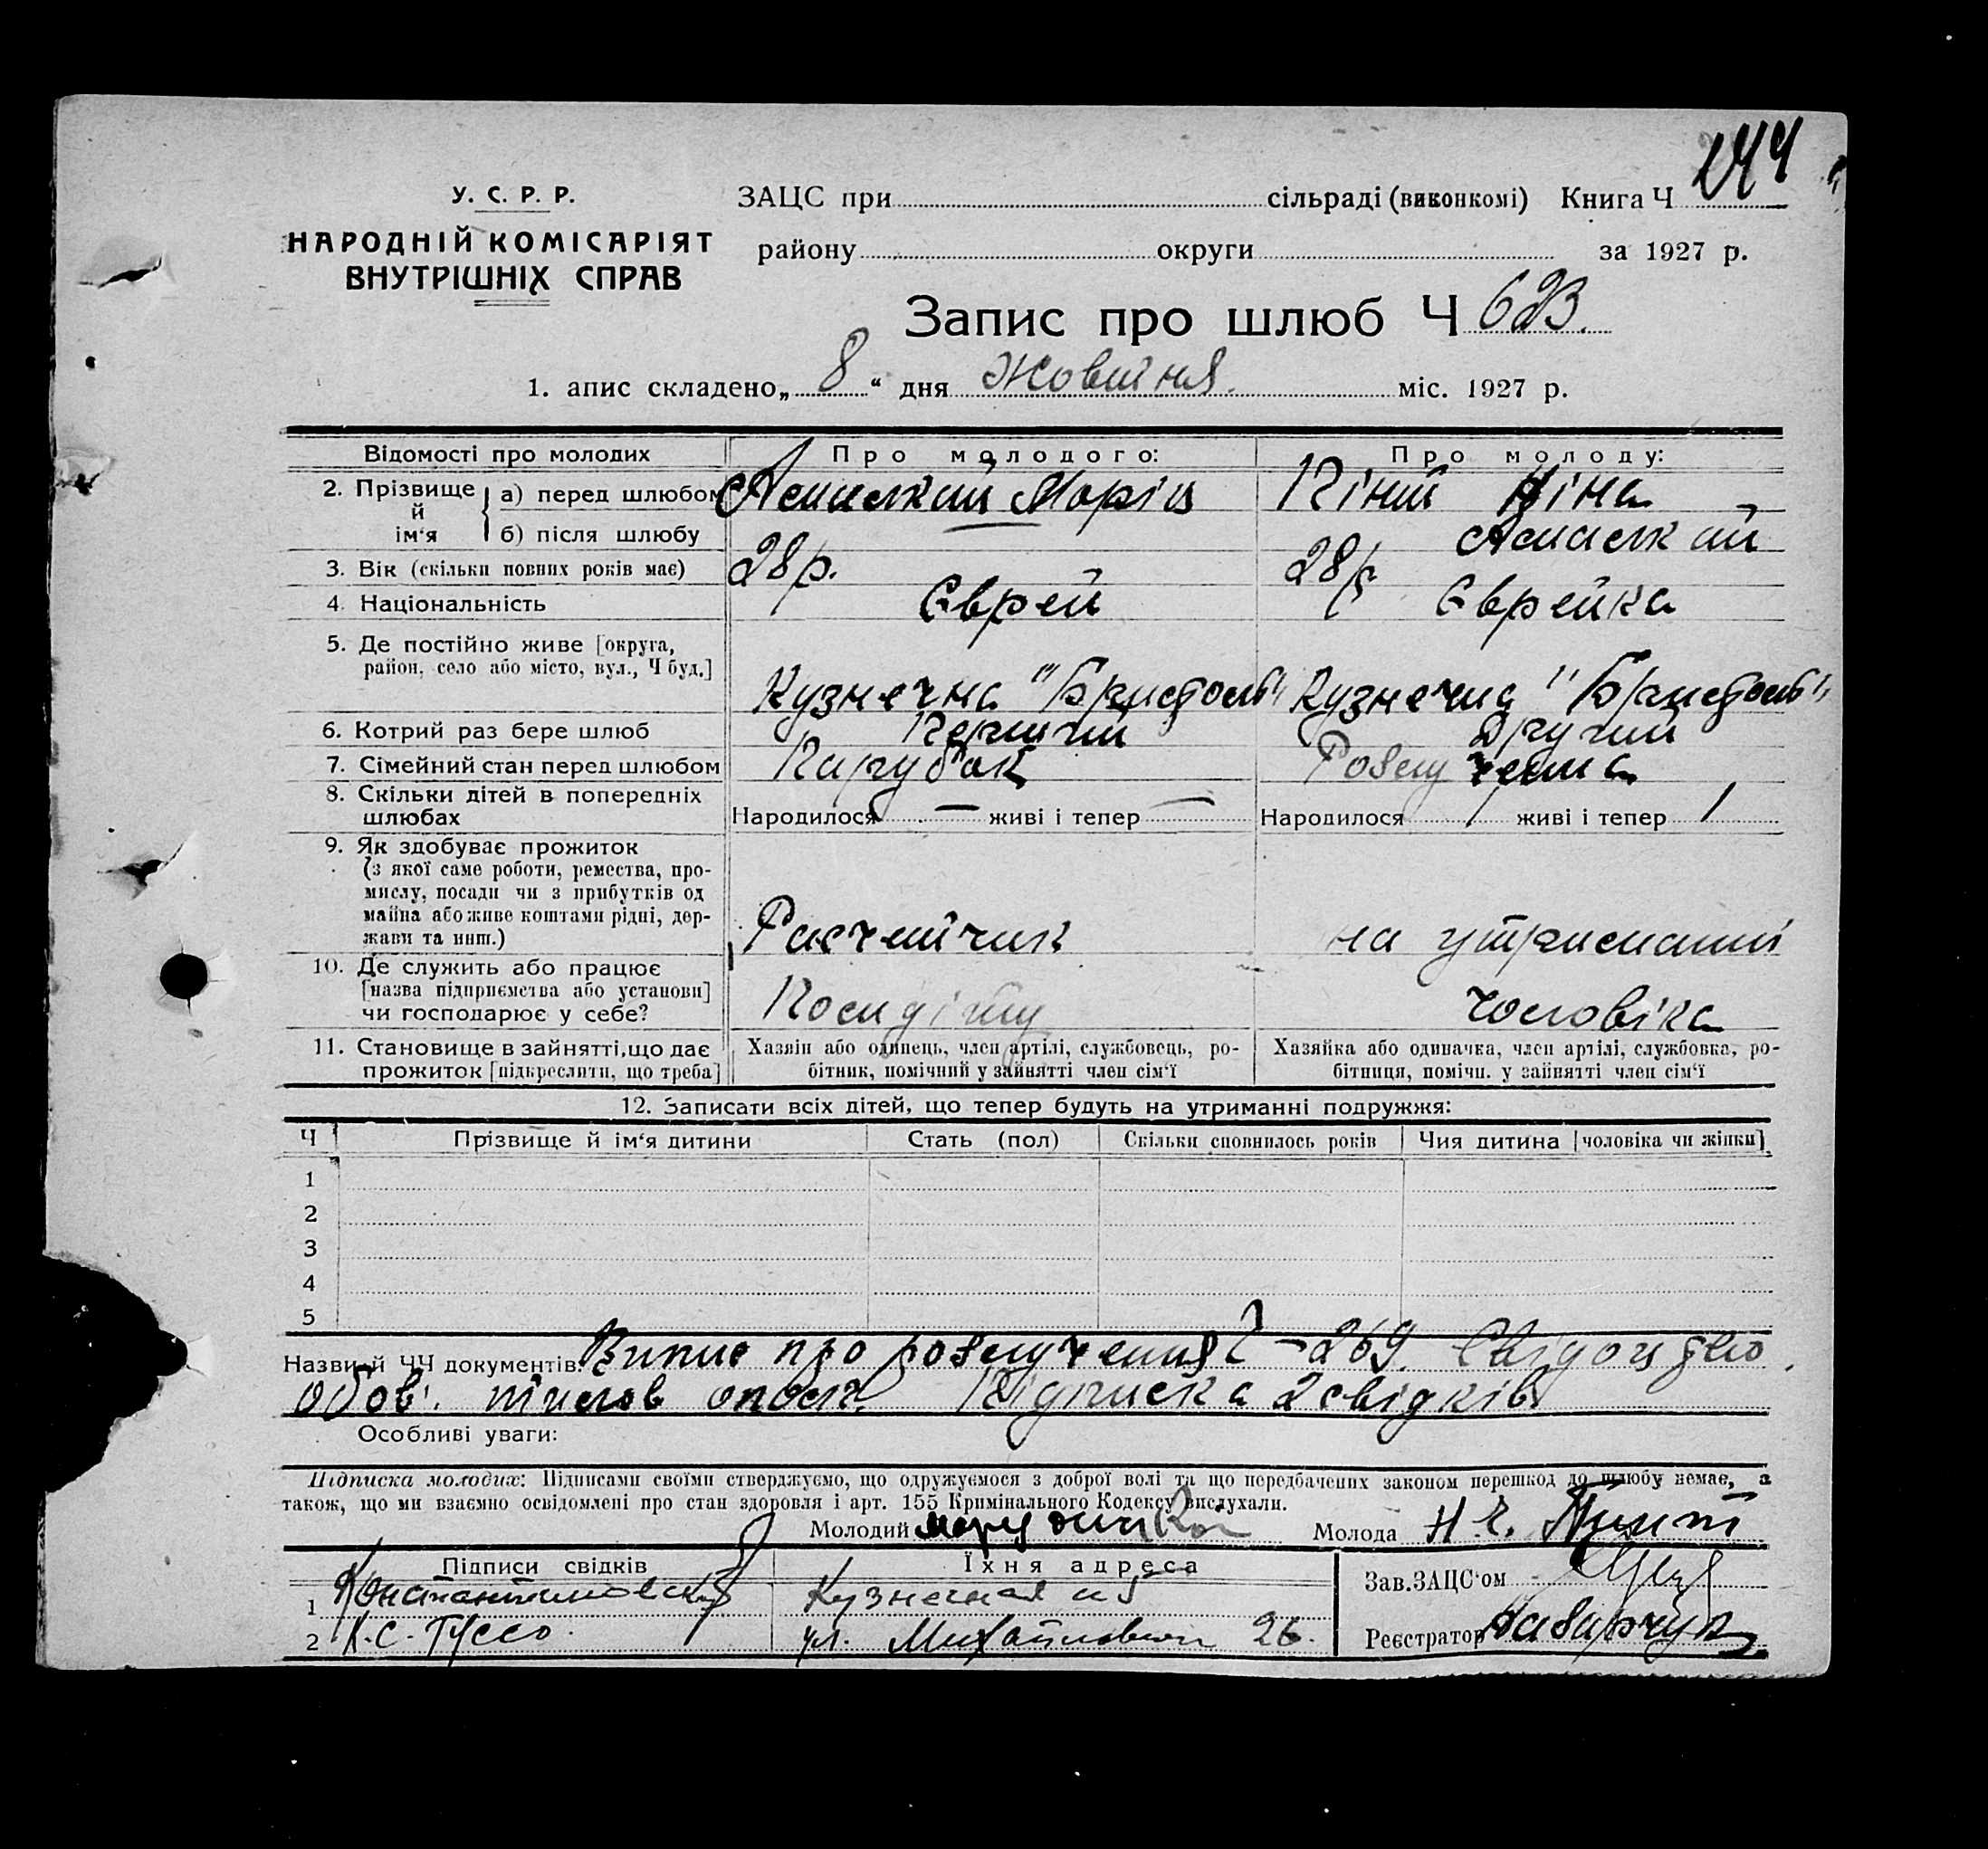 244
У. С. Р. Р.
НАРОДНІЙ КОМІСАРІЯТ
ВНУТРІШНІХ СПРАВ
ЗАЦС при сільраді (виконкомі) Книга Ч
району округи за 1927 р.
Запис про шлюб Ч 623.
1. апис складено „ 8 “ дня Жовтня міс. 1927 р.
Відомості про молодих Про молодого: Про молоду:
2. Прізвище й ім‘я а) перед шлюбом Ніна
б) після шлюбу
3. Вік (скільки повних років має) 28 р. 28 р
4. Національність Єврей Єврейка
5. Де постійно живе [округа,
район, село або місто, вул., Ч буд.]
Кузнечна "Бристоль" Кузнечна "Бристоль"
6. Котрий раз бере шлюб Перший Другий
7. Сімейний стан перед шлюбом Парубок Розлучена
8. Скільки дітей в попередніх
шлюбах Народилося — живі і тепер — Народилося 1 живі і тепер 1
9. Як здобуває прожиток
(з якої саме роботи, ремества, про-
мислу, посади чи з прибутків од
майна або живе коштами рідні, дер-
жави та инш.) на утриманні
10. Де служить або працює
[назва підприємства або установи]
чи господарює у себе? чоловіка
11. Становище в зайнятті, що дає
прожиток [підкреслити, що треба]
Хазяін або одинець, член артілі, службовець, ро-
бітник, помічний у зайнятті член сім‘ї
Хазяйка або одиначка, член артілі, службовка, ро-
бітниця, помічн. у зайнятті член сім‘ї
12. Записати всіх дітей, що тепер будуть на утриманні подружжя:
Ч Прізвище й ім‘я дитини Стать (пол) Скільки сповнилось років Чия дитина [чоловіка чи жінки]
1
2
3
4
5
Назви й ЧЧ документів: Випис про розлучення Ч-269. Свідоцтво
обов. Підписка 2 свідків
Особливі уваги:
Підписка молодих: Підписами своїми стверджуємо, що одружуємося з доброї волі та що передбачених законом перешкод до шлюбу немає, а
також, що ми взаємно освідомлені про стан здоровля і арт. 155 Кримінального Кодексу вислухали.
Молодий Молода
Підписи свідків Їхня адреса
1 Константиновский Кузнечная
2 К.С. Гуссо. ул. 26.
Зав. ЗАЦС‘ом
Реєстратор